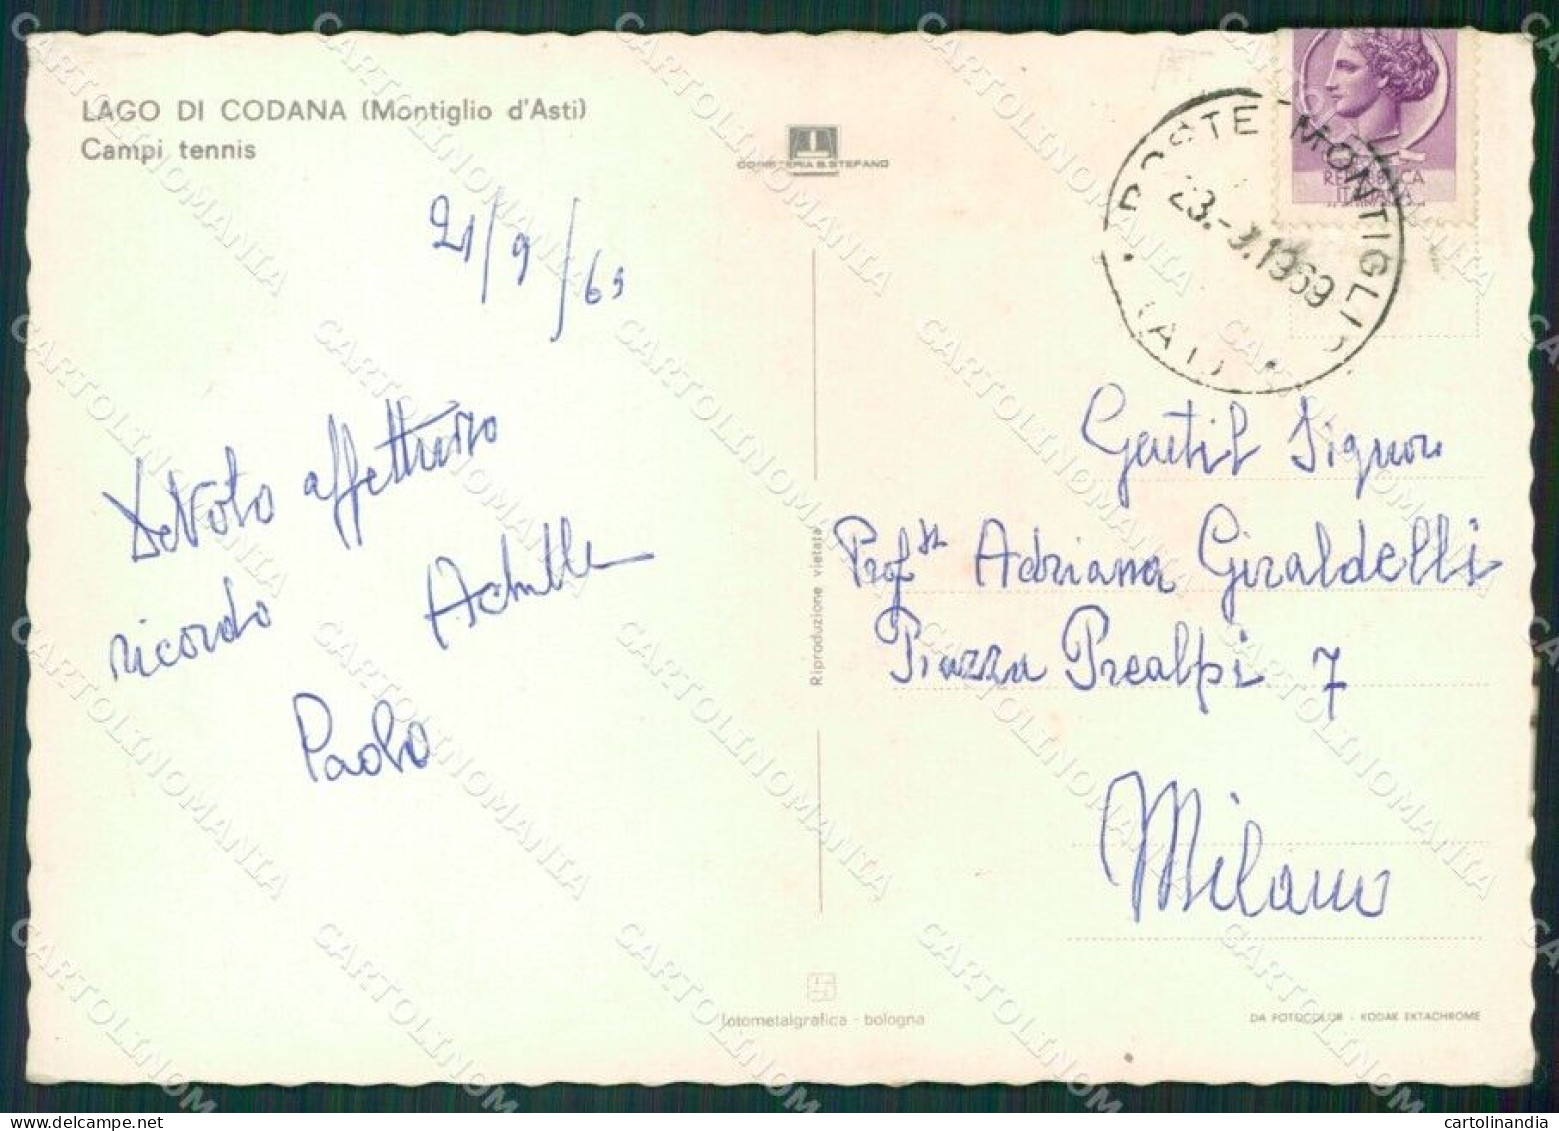 LAGO DI CODANA (Montiglio d'Asti)
Campi tennis
21/9/69
Devoto affettuoso
ricordo Achille
Paolo
CONSTERIA S. STEFANO
Riproduzione vietata
fotometalgrafica - bologna
POSTE MONTIGLIO
23.-9.1969
(AT)
REPUBBLICA
ITALIANA
Gentil Signora
Prof.ssa Adriana Giraldelli
Piazza Prealpi 7
Milano
DA FOTOCOLOR - KODAK EKTACHROME
CARTOLINOMANIA
cartolinandia